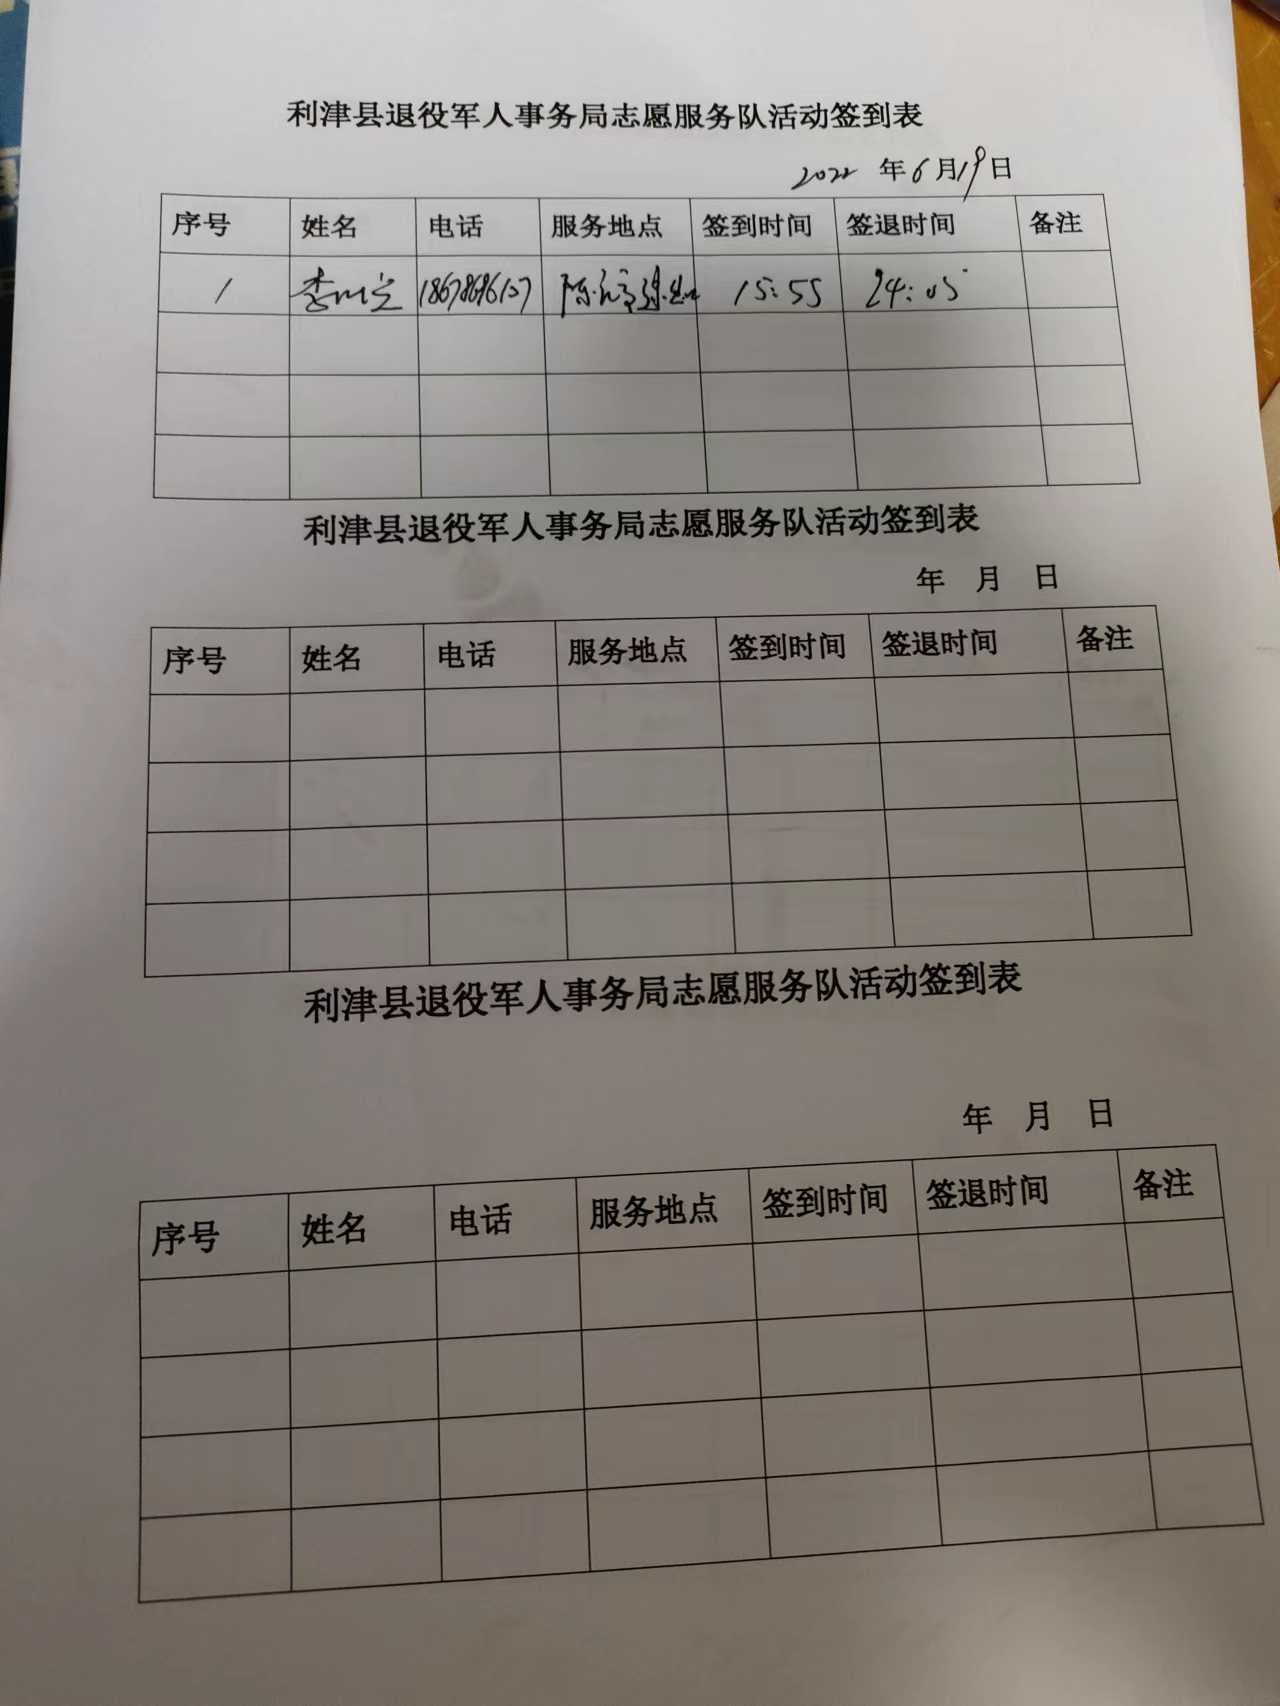 利津县退役军人事务局志愿服务队活动签到表
2022 年 6 月 19 日
序号 姓名 电话 服务地点 签到时间 签退时间 备注
1 李 15:55 24:05
利津县退役军人事务局志愿服务队活动签到表
年 月 日
序号 姓名 电话 服务地点 签到时间 签退时间 备注
利津县退役军人事务局志愿服务队活动签到表
年 月 日
序号 姓名 电话 服务地点 签到时间 签退时间 备注